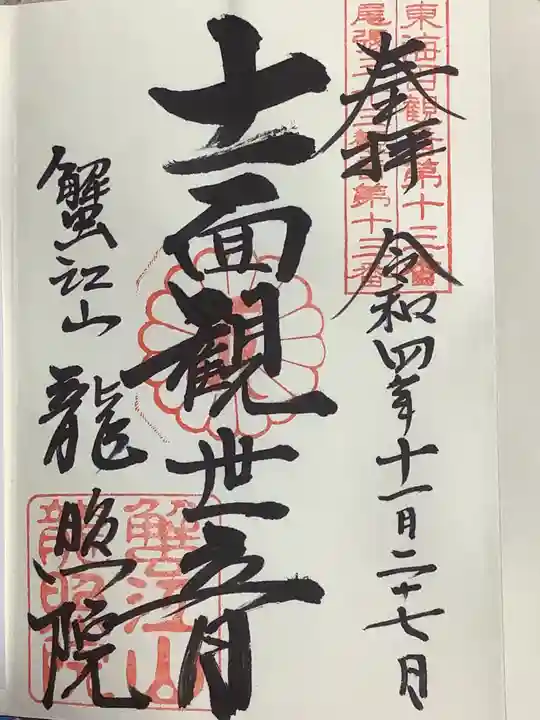 東海百観音第十三番
尾張三十三観音第十三番
奉拝 令和四年十一月二十七月
十一面観世音
蟹江山 龍照院
蟹江山
龍照院